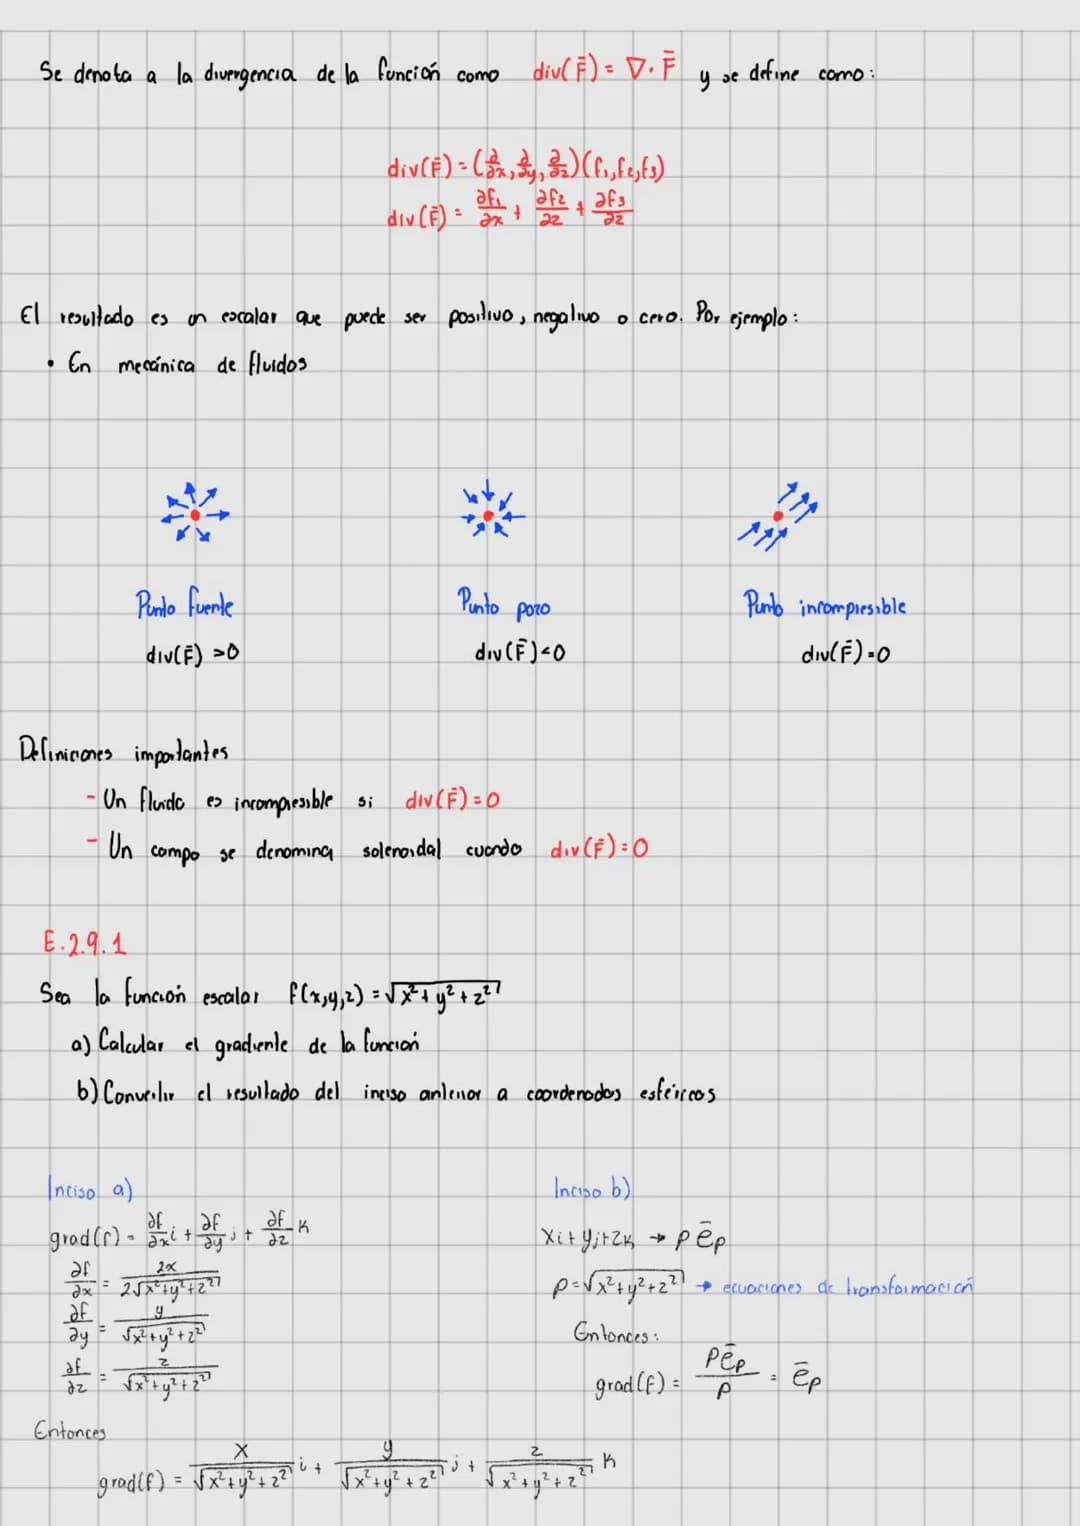 Se denota a la divergencia de la función como div(F̄) = ∇·F̄ y se define como:
div(F̄) = (∂/∂x, ∂/∂y, ∂/∂z)(f₁,f₂,f₃)
div(F̄) = ∂f₁/∂x + ∂f₂/∂z + ∂f₃/∂z
El resultado es un escalar que puede ser positivo, negativo o cero. Por ejemplo:
• En mecánica de fluidos
Punto fuente Punto pozo Punto incompresible
div(F̄) >0 div(F̄)<0 div(F̄)=0
Definiciones importantes
- Un fluido es incompresible si div(F̄)=0
- Un campo se denomina solenoidal cuando div(F̄)=0
E.2.9.1
Sea la función escalar f(x,y,z) = √x²+y²+z²
a) Calcular el gradiente de la función
b) Convertir el resultado del inciso anterior a coordenadas esféricas
Inciso a)
grad(f) = ∂f/∂x i + ∂f/∂y j + ∂f/∂z k
∂f/∂x = 2x/2√x²+y²+z²
∂f/∂y = y/√x²+y²+z²
∂f/∂z = z/√x²+y²+z²
Entonces
grad(f) = x/√x²+y²+z² i + y/√x²+y²+z² j + z/√x²+y²+z² k
Inciso b)
xi+yj+zk → ρ ēρ
ρ=√x²+y²+z² → ecuaciones de transformación
Entonces:
grad(f) = ρēρ/ρ = ēρ